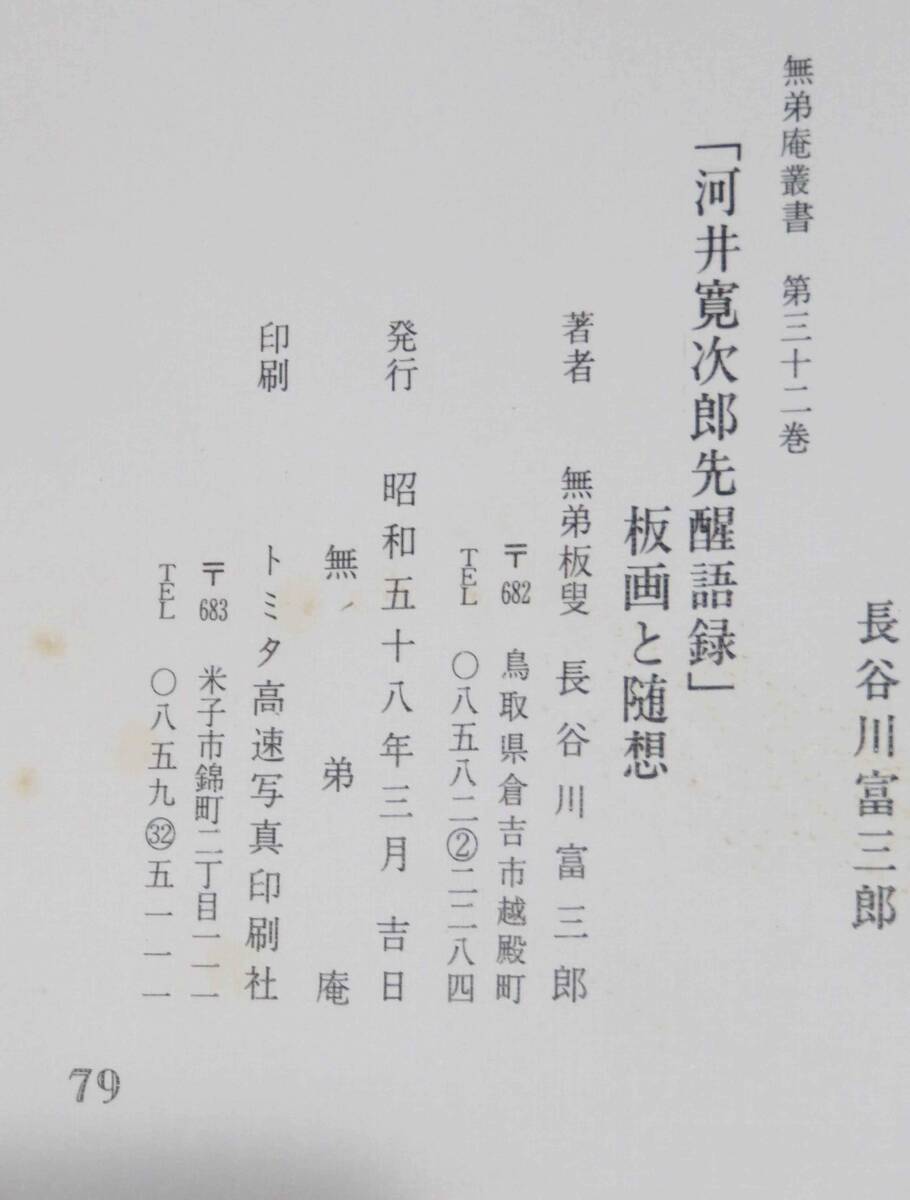 長谷川富三郎
無弟庵叢書 第三十二巻
「河井寛次郎先醒語録」
板画と随想
著者 無弟板叟 長谷川富三郎
〒682 鳥取県倉吉市越殿町
TEL 〇八五八二②二二八四
発行 昭和五十八年三月吉日
無弟庵
印刷 トミタ高速写真印刷社
〒683 米子市錦町二丁目一一一
TEL 〇八五九㉜五一一一
79